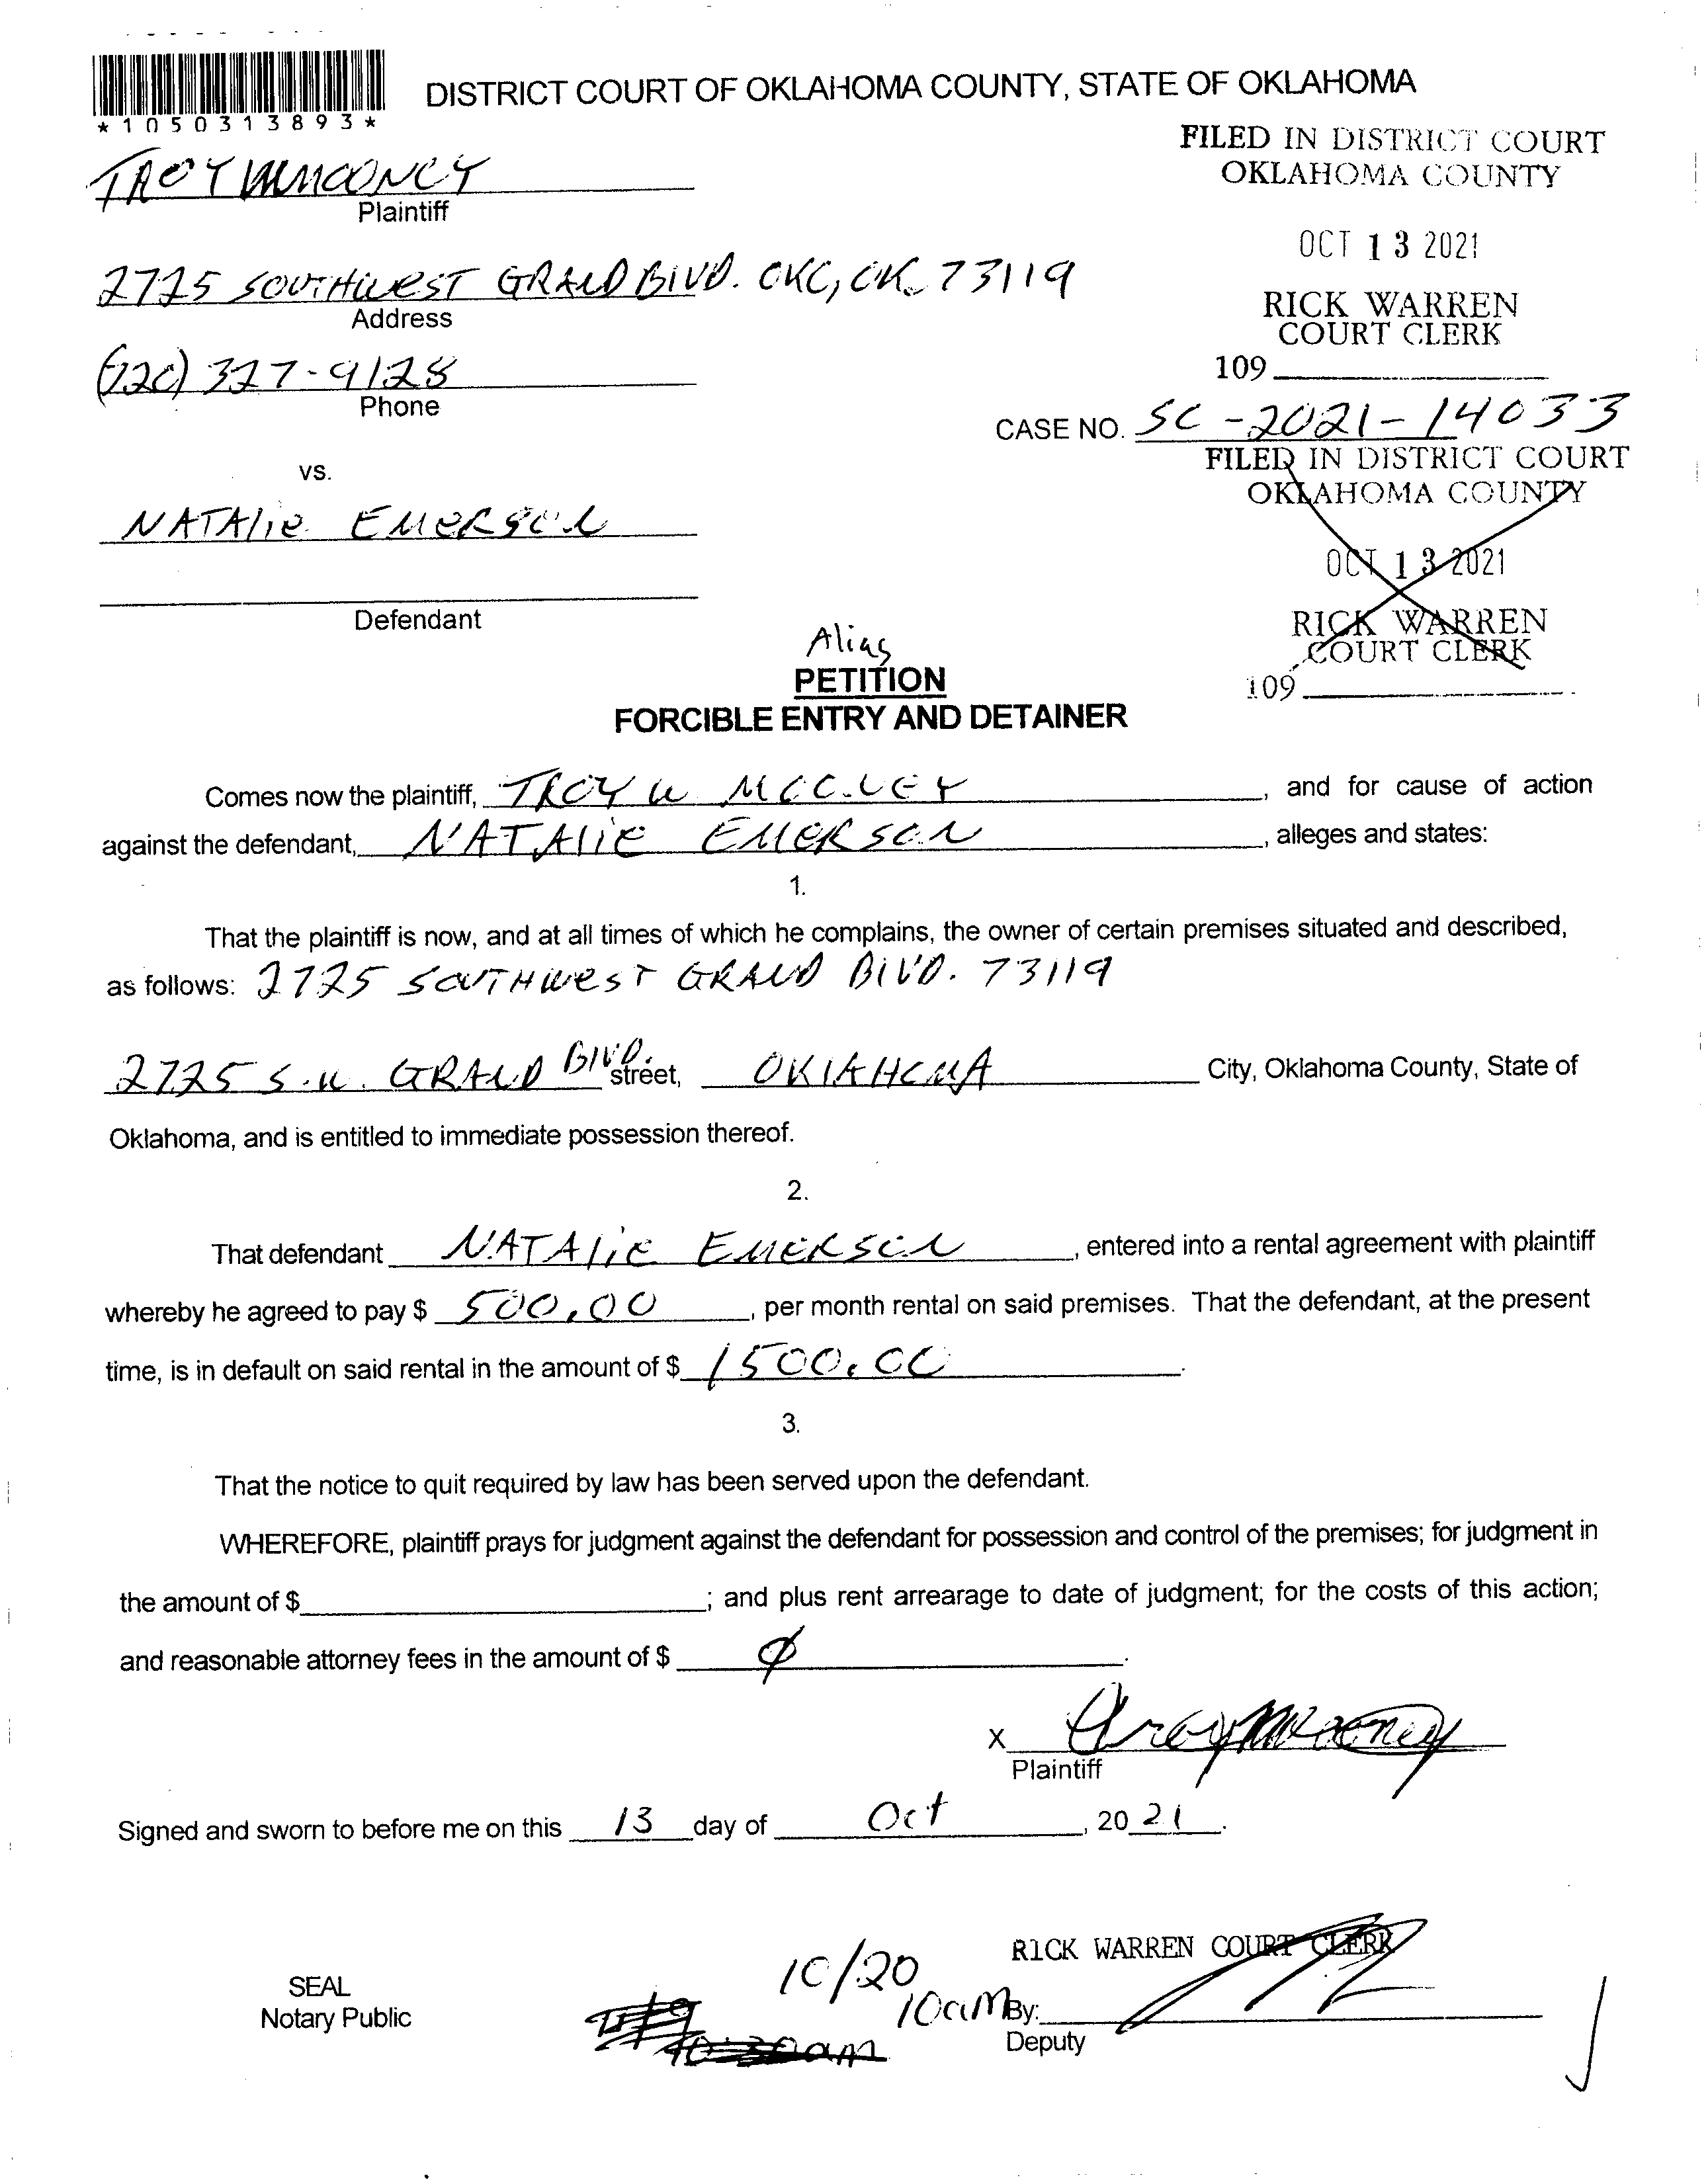 *1050313893*
DISTRICT COURT OF OKLAHOMA COUNTY, STATE OF OKLAHOMA
FILED IN DISTRICT COURT
OKLAHOMA COUNTY
TROY W MOONEY
Plaintiff
OCT 13 2021
2725 SOUTHWEST GRAND BLVD. OKC, OK. 73119
Address
RICK WARREN
COURT CLERK
109
(720) 327-9128
Phone
CASE NO. SC-2021-14033
FILED IN DISTRICT COURT
OKLAHOMA COUNTY
vs.
NATAliE EMERSON
OCT 13 2021
Defendant
RICK WARREN
COURT CLERK
109
Alias
PETITION
FORCIBLE ENTRY AND DETAINER
Comes now the plaintiff, TROY W MOONEY, and for cause of action
against the defendant, NATAliE EMERSON, alleges and states:
1.
That the plaintiff is now, and at all times of which he complains, the owner of certain premises situated and described,
as follows: 2725 SOUTHWEST GRAND BLVD. 73119
2725 S.W. GRAND BLVD. street, OKLAHOMA City, Oklahoma County, State of
Oklahoma, and is entitled to immediate possession thereof.
2.
That defendant NATAliE EMERSON, entered into a rental agreement with plaintiff
whereby he agreed to pay $ 500.00, per month rental on said premises. That the defendant, at the present
time, is in default on said rental in the amount of $ 1500.00.
3.
That the notice to quit required by law has been served upon the defendant.
WHEREFORE, plaintiff prays for judgment against the defendant for possession and control of the premises; for judgment in
the amount of $; and plus rent arrearage to date of judgment; for the costs of this action;
and reasonable attorney fees in the amount of $ Ø.
X Troy Mooney
Plaintiff
Signed and sworn to before me on this 13 day of Oct, 20 21.
RICK WARREN COURT CLERK
SEAL
Notary Public
10/20
10am
By:
Deputy
10:30am